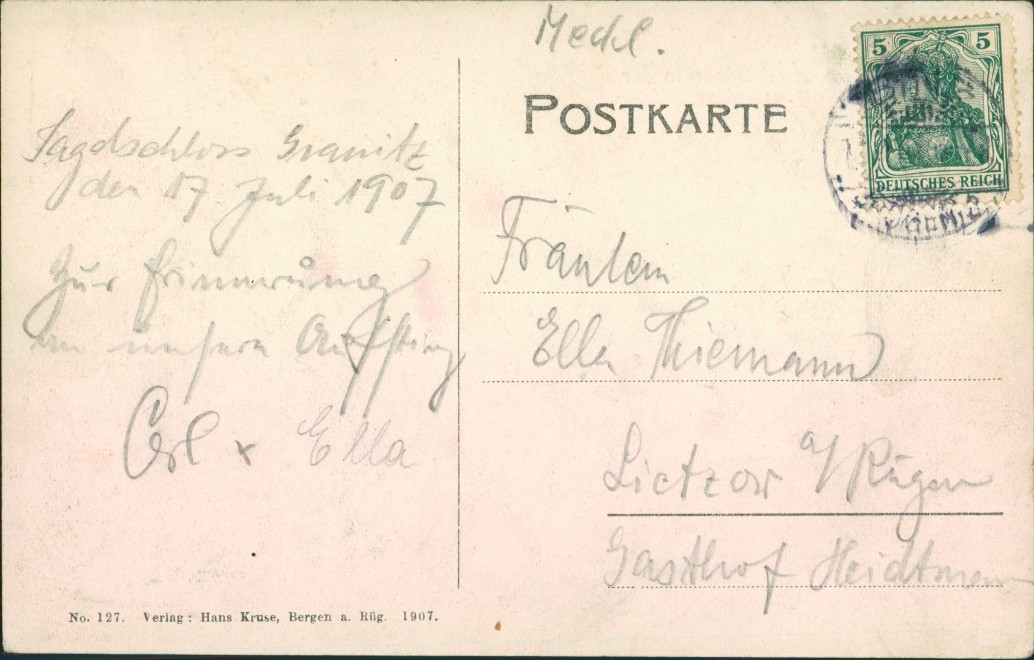 Meckl.
POSTKARTE
5 5
DEUTSCHES REICH
Jagdschloss Granitz
den 17. Juli 1907
Zur Erinnerung
an unsern
Carl + Ella
Fräulein
Ella Thiemann
Lietzow a/ Rügen
Gasthof Heidtmann
No. 127. Verlag: Hans Kruse, Bergen a. Rüg. 1907.